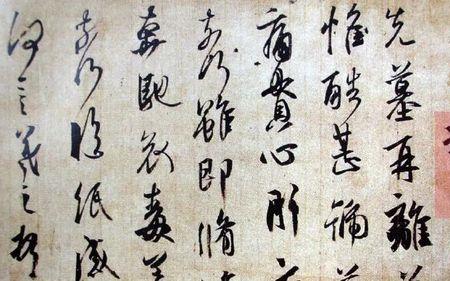 先墓再離
惟酷甚號
痛貫心肝
奈何雖即脩
奔馳哀毒
奈何臨紙感
何言羲之頓